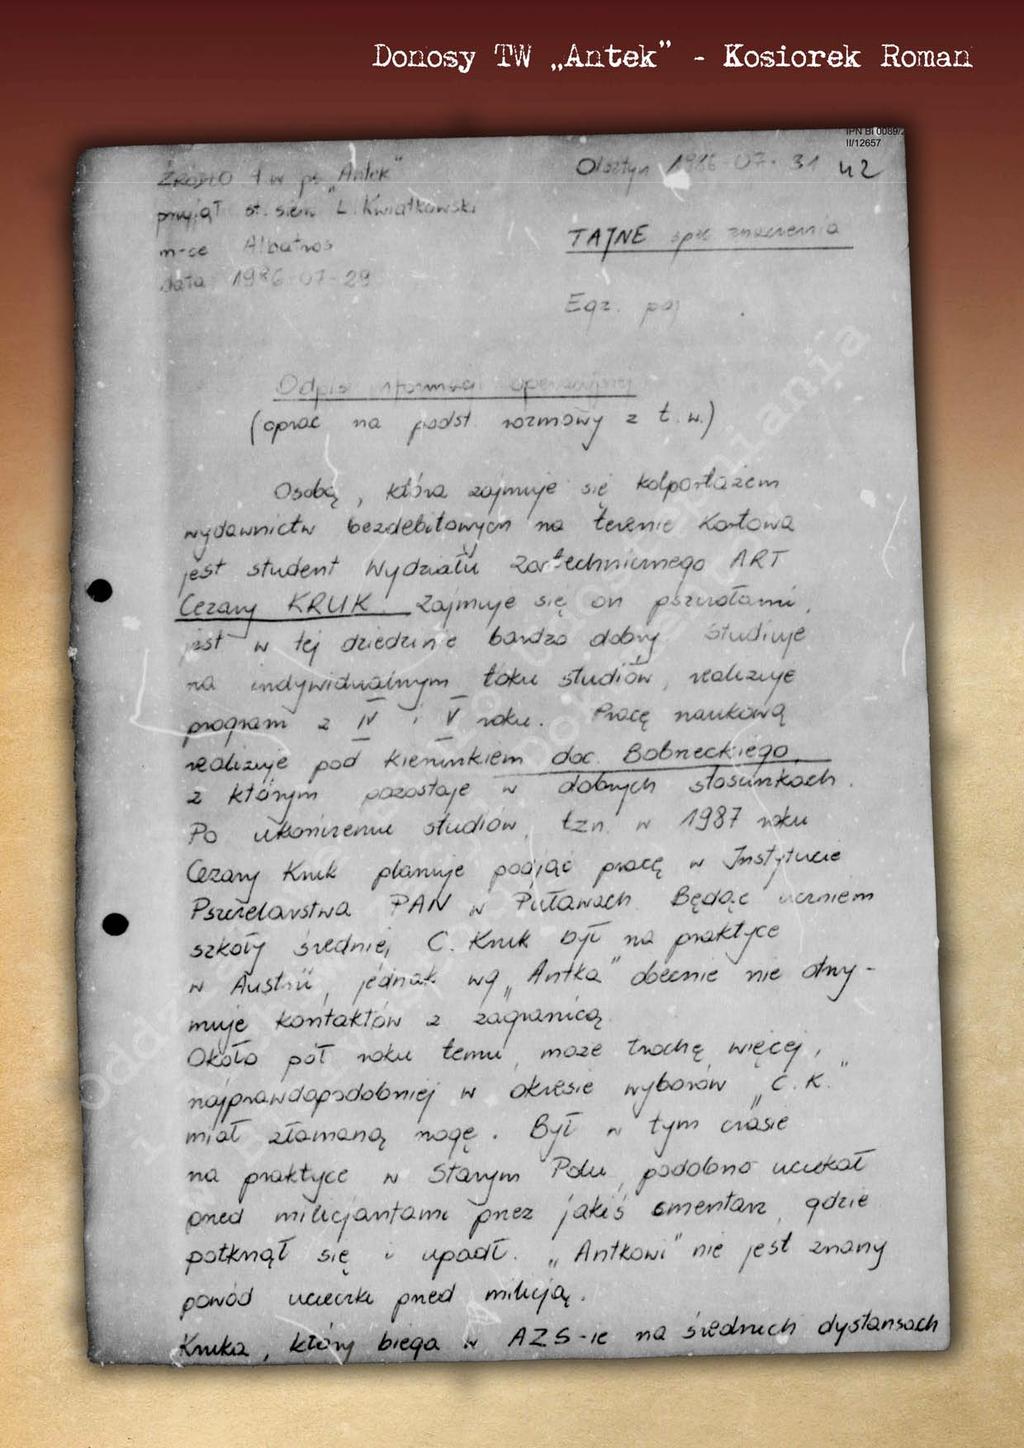 Donosy TW „Antek” - Kosiorek Roman
IPN BI 0089/2
II/12657
Źródło t.w. ps. „Antek”
przyjął st. sierż. L. Kwiatkowski
m-ce Albatros
data 1986-07-29
Olsztyn 1986-07-31
42
TAJNE spec. znaczenia
Egz. poj.
Odpis informacji operacyjnej
(oprac na podst. rozmowy z t.w.)
Osobą, która zajmuje się kolportażem
wydawnictw bezdebitowych na terenie Kortowa
jest student Wydziału Zootechnicznego ART
Cezary KRUK. Zajmuje się on pszczołami,
jest w tej dziedzinie bardzo dobry. Studiuje
na indywidualnym toku studiów, realizuje
program z IV i V roku. Pracę naukową
realizuje pod kierunkiem doc. Bobrzeckiego,
z którym pozostaje w dobrych stosunkach.
Po ukończeniu studiów, tzn. w 1987 roku
Cezary Kruk planuje podjąć pracę w Instytucie
Pszczelarstwa PAN w Puławach. Będąc uczniem
szkoły średniej C. Kruk był na praktyce
w Austrii, jednak wg „Antka” obecnie nie otrzy-
muje kontaktów z zagranicą.
Około pół roku temu, może trochę więcej,
najprawdopodobniej w okresie wyborów „C.K.”
miał złamaną nogę. Był w tym czasie
na praktyce w Starym Polu, podobno uciekał
przed milicjantami przez jakiś cmentarz, gdzie
potknął się i upadł. „Antkowi” nie jest znany
powód ucieczki przed milicją.
Kruka, który biega w AZS-ie na średnich dystansach